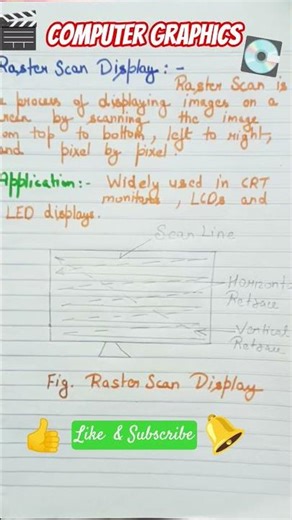 COMPUTER GRAPHICS
Raster Scan Display :-
Raster Scan is
a process of displaying images on a
screen by scanning the image
from top to bottom, left to right,
and pixel by pixel.
Application:- Widely used in CRT
monitors, LCDs and
LED displays.
Scan Line
Horizontal
Retrace
Vertical
Retrace
Fig. Raster Scan Display
Like & Subscribe